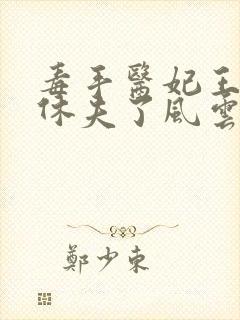 毒手醫妃王
休夫了風雲
鄭少東